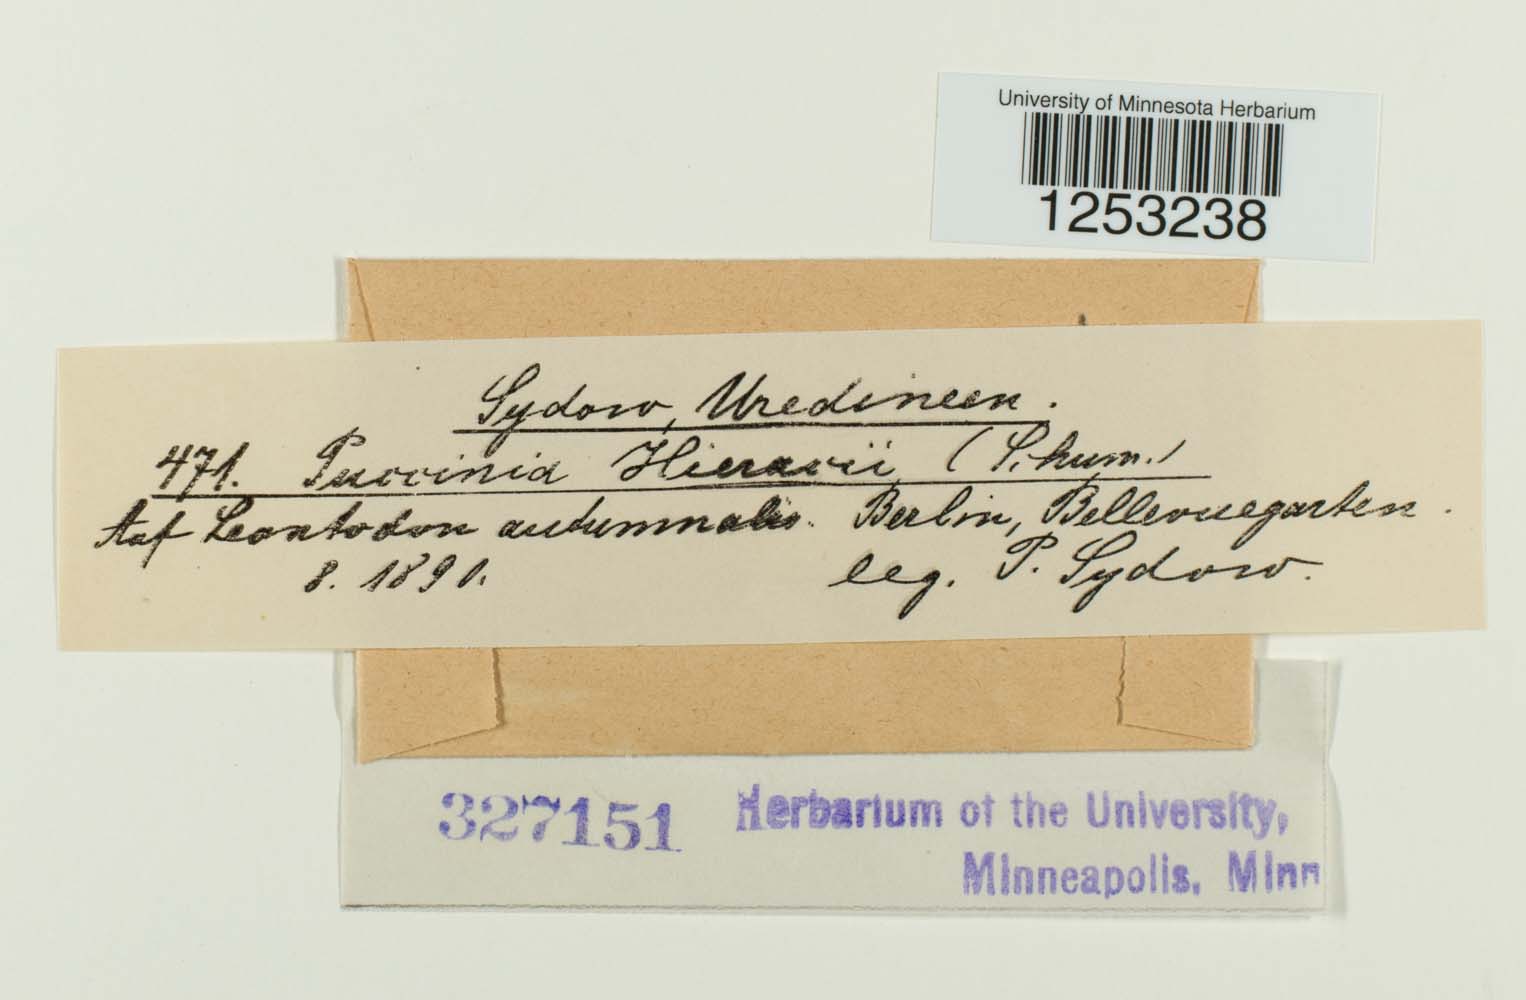 University of Minnesota Herbarium
1253238
Sydow, Uredineen.
471. Puccinia Hieracii (Schum.)
Auf Leontodon autumnalis. Berlin, Bellevuegarten.
8. 1890. leg. P. Sydow.
327151 Herbarium of the University,
Minneapolis, Minn